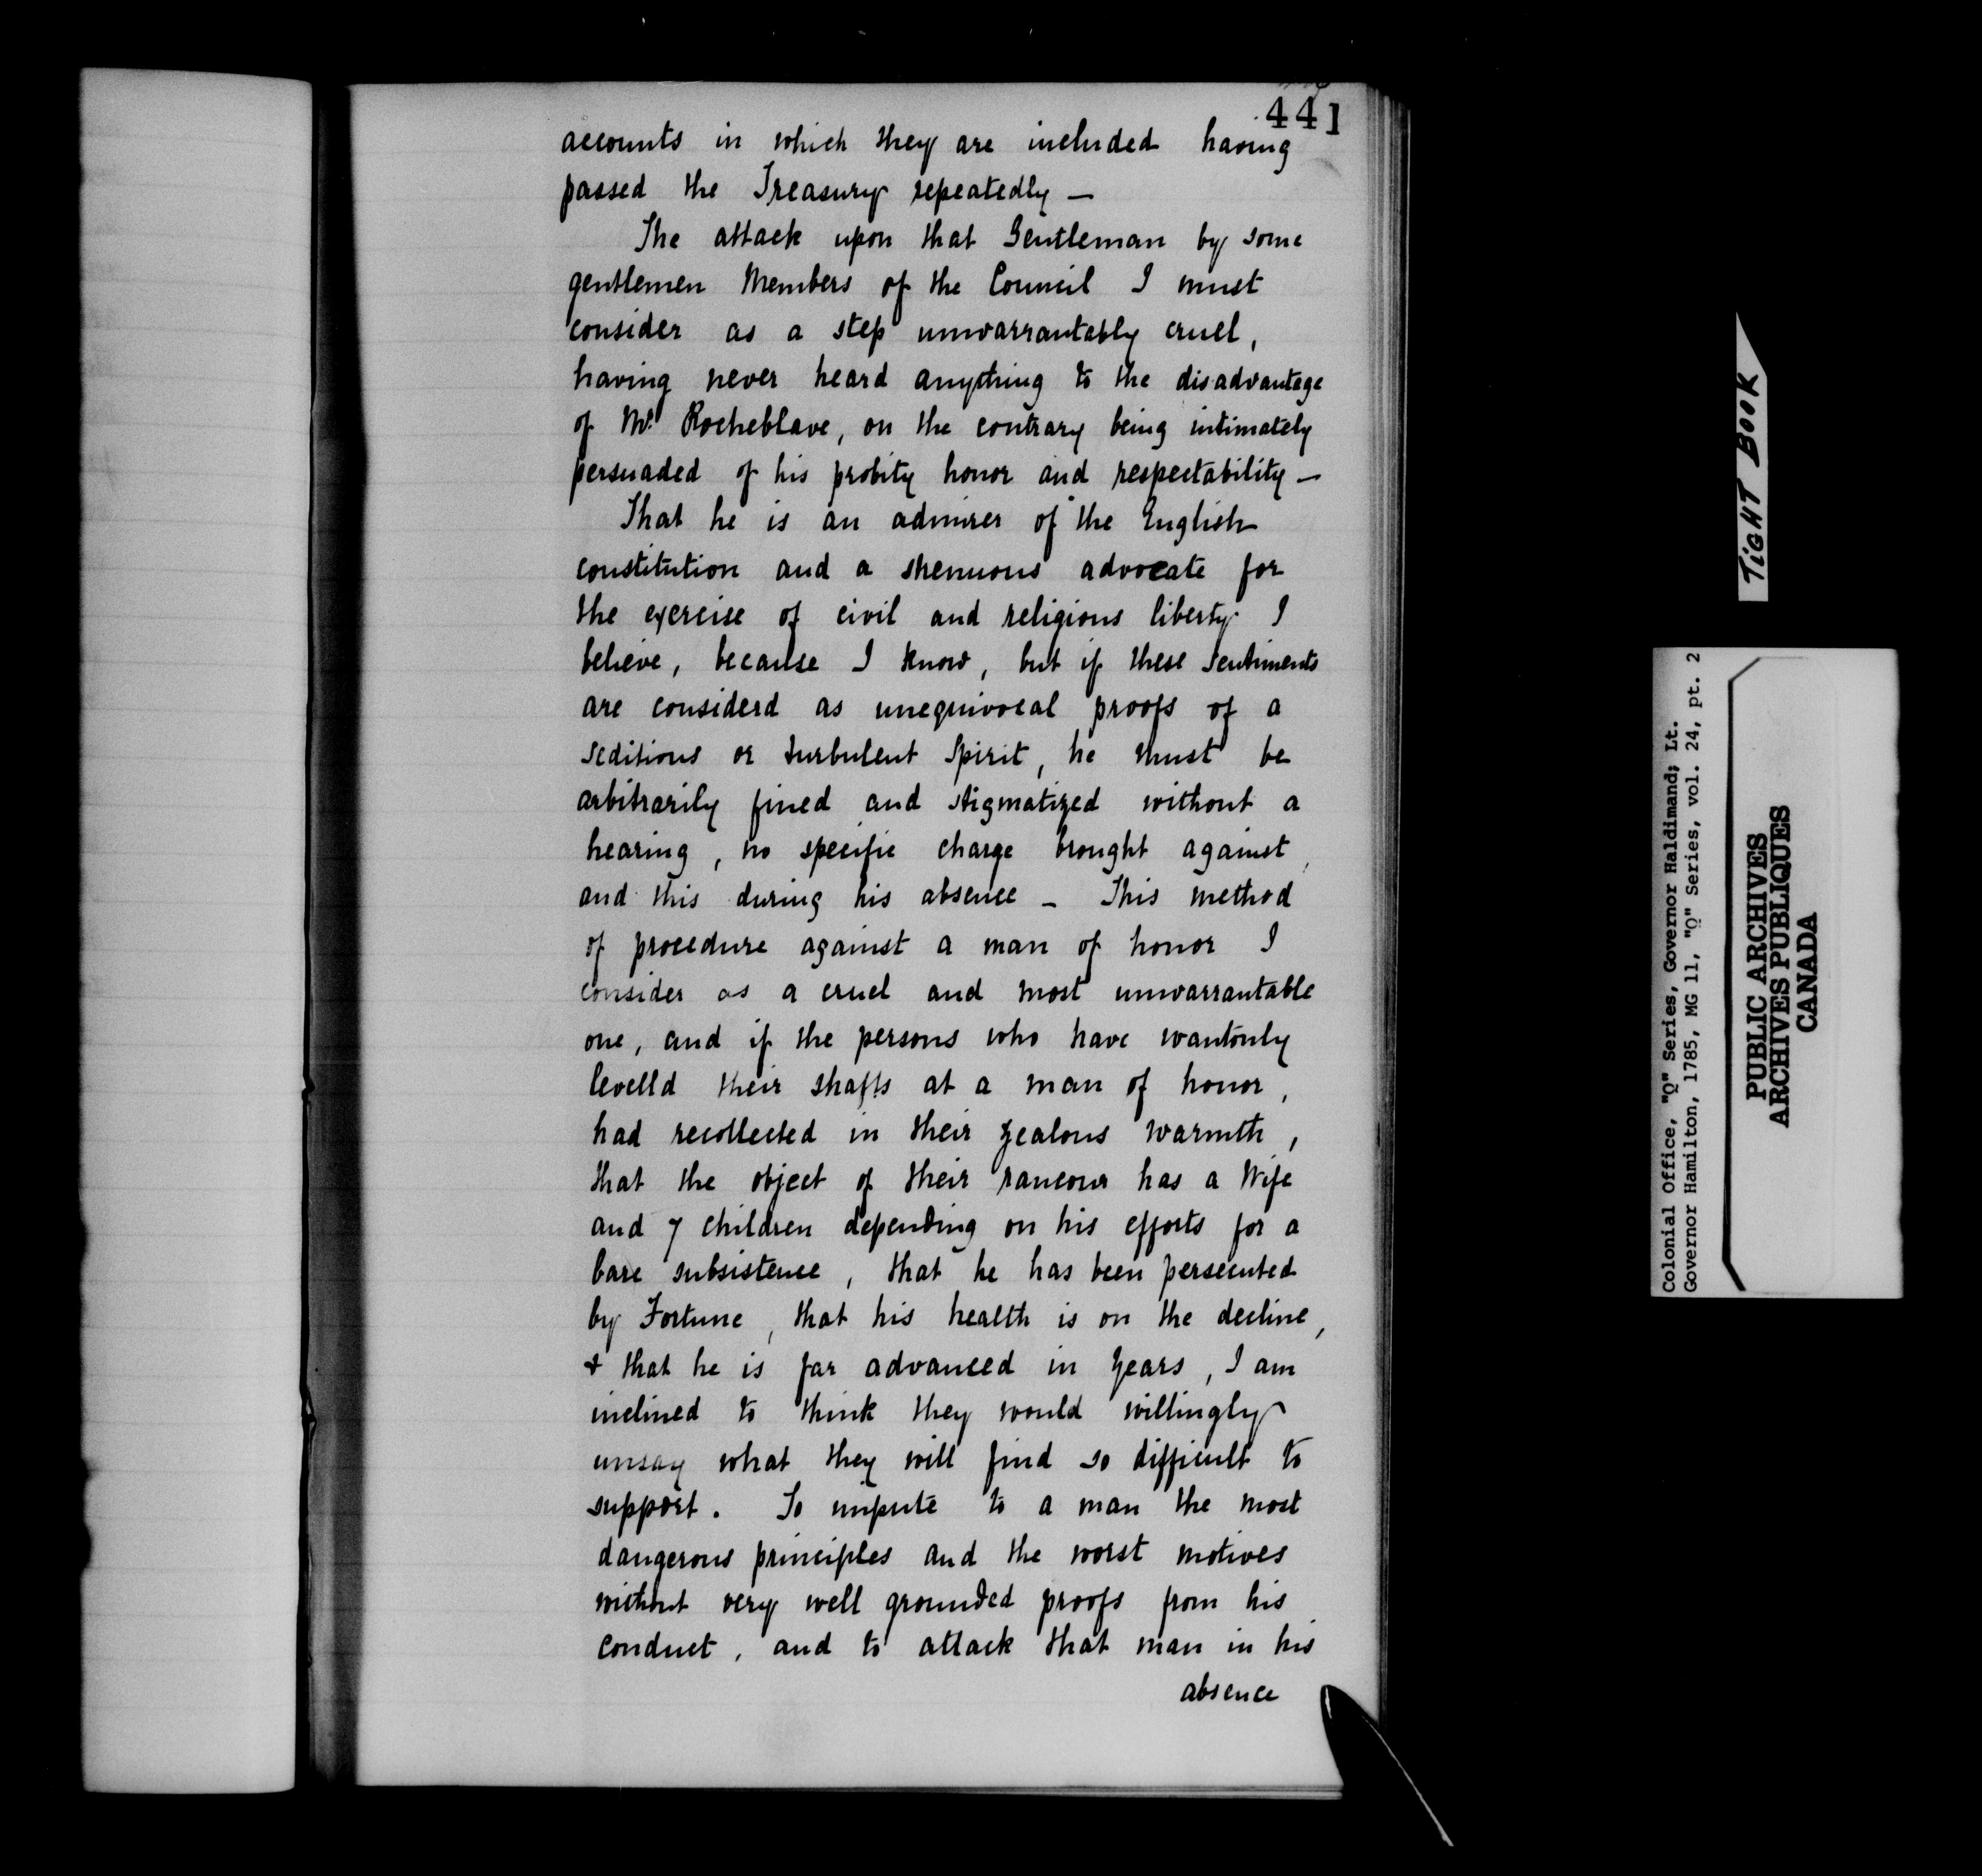 441
accounts in which they are included having
passed the Treasury repeatedly —
The attack upon that Gentleman by some
gentlemen Members of the Council I must
consider as a step unwarrantably cruel,
having never heard anything to the disadvantage
of Mr. Rocheblave, on the contrary being intimately
persuaded of his probity honor and respectability —
That he is an admirer of the English
constitution and a strenuous advocate for
the exercise of civil and religious liberty I
believe, because I know, but if these sentiments
are considerd as unequivocal proofs of a
seditious or turbulent Spirit, he must be
arbitrarily fined and stigmatized without a
hearing, no specific charge brought against,
and this during his absence - This method
of procedure against a man of honor I
consider as a cruel and most unwarrantable
one, and if the persons who have wantonly
levelld their shafts at a man of honor,
had recollected in their zealous warmth,
that the object of their rancour has a Wife
and 7 children depending on his efforts for a
bare subsistence, that he has been persecuted
by Fortune, that his health is on the decline,
& that he is far advanced in years, I am
inclined to think they would willingly
unsay what they will find so difficult to
support. To impute to a man the most
dangerous principles and the worst motives
without very well grounded proofs from his
conduct, and to attack that man in his
absence
TIGHT BOOK
Colonial Office, "Q" Series, Governor Haldimand; Lt.
Governor Hamilton, 1785, MG 11, "Q" Series, vol. 24, pt. 2
PUBLIC ARCHIVES
ARCHIVES PUBLIQUES
CANADA